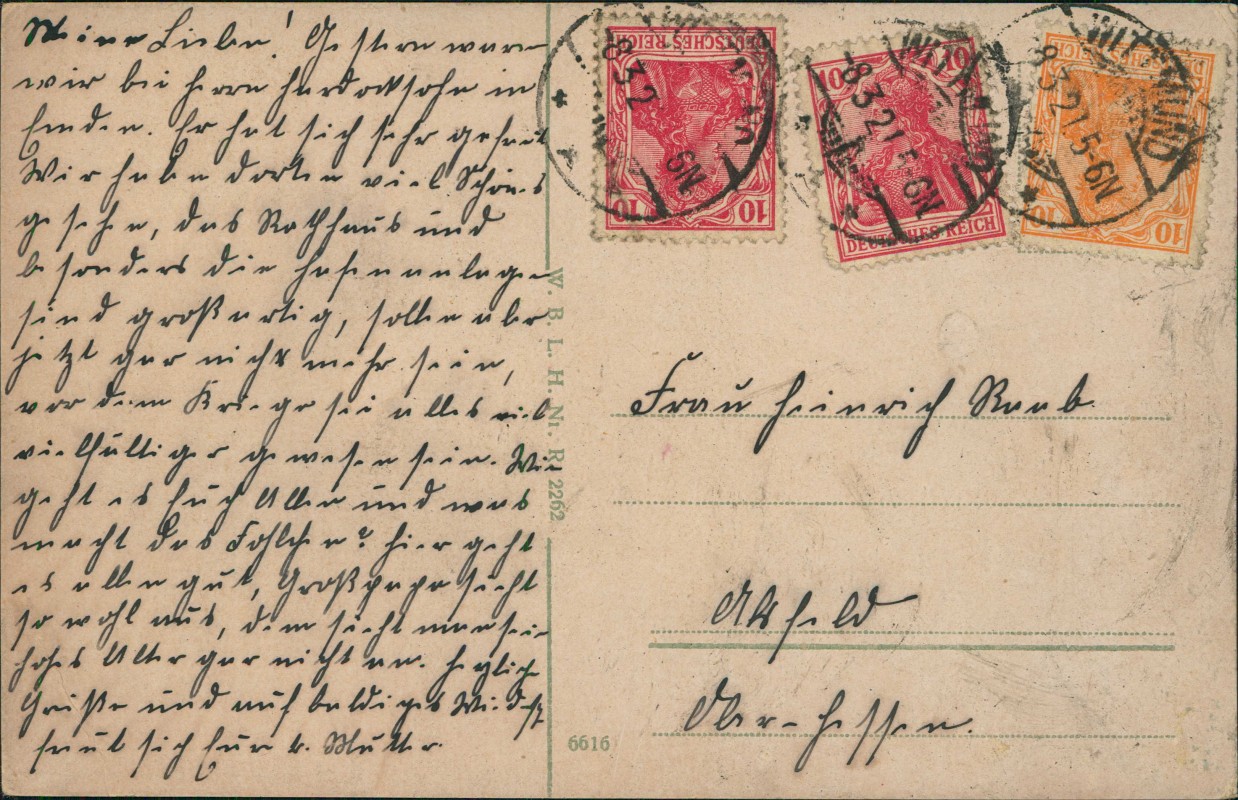 Meine Lieben! Gestern waren
wir bei Herrn Hardocksohn in
Emden. Er hat sich sehr gefreut
Wir haben dorten viel Schönes
gesehen, das Rathhaus und
besonders die Hafenanlagen
sind großartig, sollen aber
jetzt gar nichts mehr sein,
vor dem Kriege sei alles viel
vielfältiger gewesen sein. Wie
geht es Euch Allen und was
macht das Fohlchen? Hier geht
es allen gut, Großpapa sieht
so wohl aus, dem sieht man sein
hohes Alter gar nicht an. Herzliche
Grüße und auf baldiges Wiedersehn
freut sich Eure l. Mutter.
W. B. L. H. Nr. R 2262
6616
DEUTSCHES REICH
10 10
-8.3.2 5-6N
10 10
DEUTSCHES REICH
WITTMUND
-8.3.21.5-6N
DEUTSCHES REICH
10 10
WITTMUND
-8.3.21.5-6N
Frau Heinrich Raab
Alsfeld
Ober-Hessen.